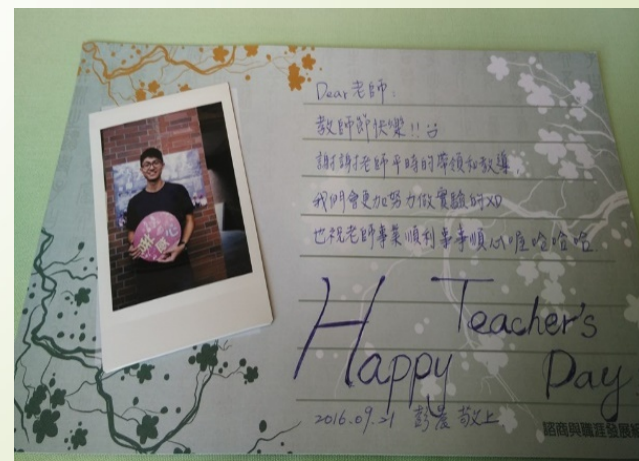 Dear 老師:
教師節快樂!!
謝謝老師平時的帶領和教導,
我們會更加努力做實驗的XD
也祝老師事業順利事事順心喔哈哈哈
Happy Teacher's Day
2016.09.21 彭晨 敬上
諮商與職涯發展組
感恩